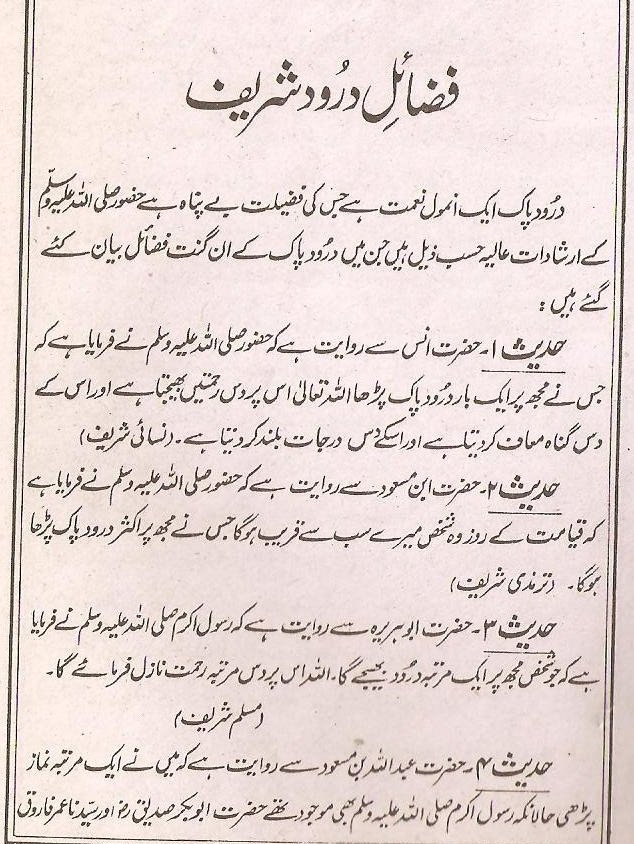 فضائلِ درُود شریف
درُود پاک ایک انمول نعمت ہے جس کی فضیلت بے پناہ ہے حضور صلی اللہ علیہ وسلّم
کے ارشادات عالیہ حسب ذیل ہیں جن میں درُود پاک کے ان گنت فضائل بیان کئے
گئے ہیں :
حدیث ۱۔ حضرت انس سے روایت ہے کہ حضور صلی اللہ علیہ وسلم نے فرمایا ہے کہ
جس نے مجھ پر ایک بار درُود پاک پڑھا اللہ تعالیٰ اس پر دس رحمتیں بھیجتا ہے اور اس کے
دس گناہ معاف کر دیتا ہے اور اسکے دس درجات بلند کر دیتا ہے۔ (نسائی شریف)
حدیث ۲۔ حضرت ابن مسعود سے روایت ہے کہ حضور صلی اللہ علیہ وسلم نے فرمایا ہے
کہ قیامت کے روز وہ شخص میرے سب سے قریب ہوگا جس نے مجھ پر اکثر درود پاک پڑھا
ہوگا۔ (ترمذی شریف)
حدیث ۳۔ حضرت ابوہریرہ سے روایت ہے کہ رسول اکرم صلی اللہ علیہ وسلم نے فرمایا
ہے کہ جو شخص مجھ پر ایک مرتبہ درُود بھیجے گا۔ اللہ اس پر دس مرتبہ رحمت نازل فرمائے گا۔
(مسلم شریف)
حدیث ۴۔ حضرت عبد اللہ بن مسعود سے روایت ہے کہ میں نے ایک مرتبہ نماز
پڑھی حالانکہ رسول اکرم صلی اللہ علیہ وسلم بھی موجود تھے حضرت ابوبکر صدیق رض اور سیّدنا عمر فاروق